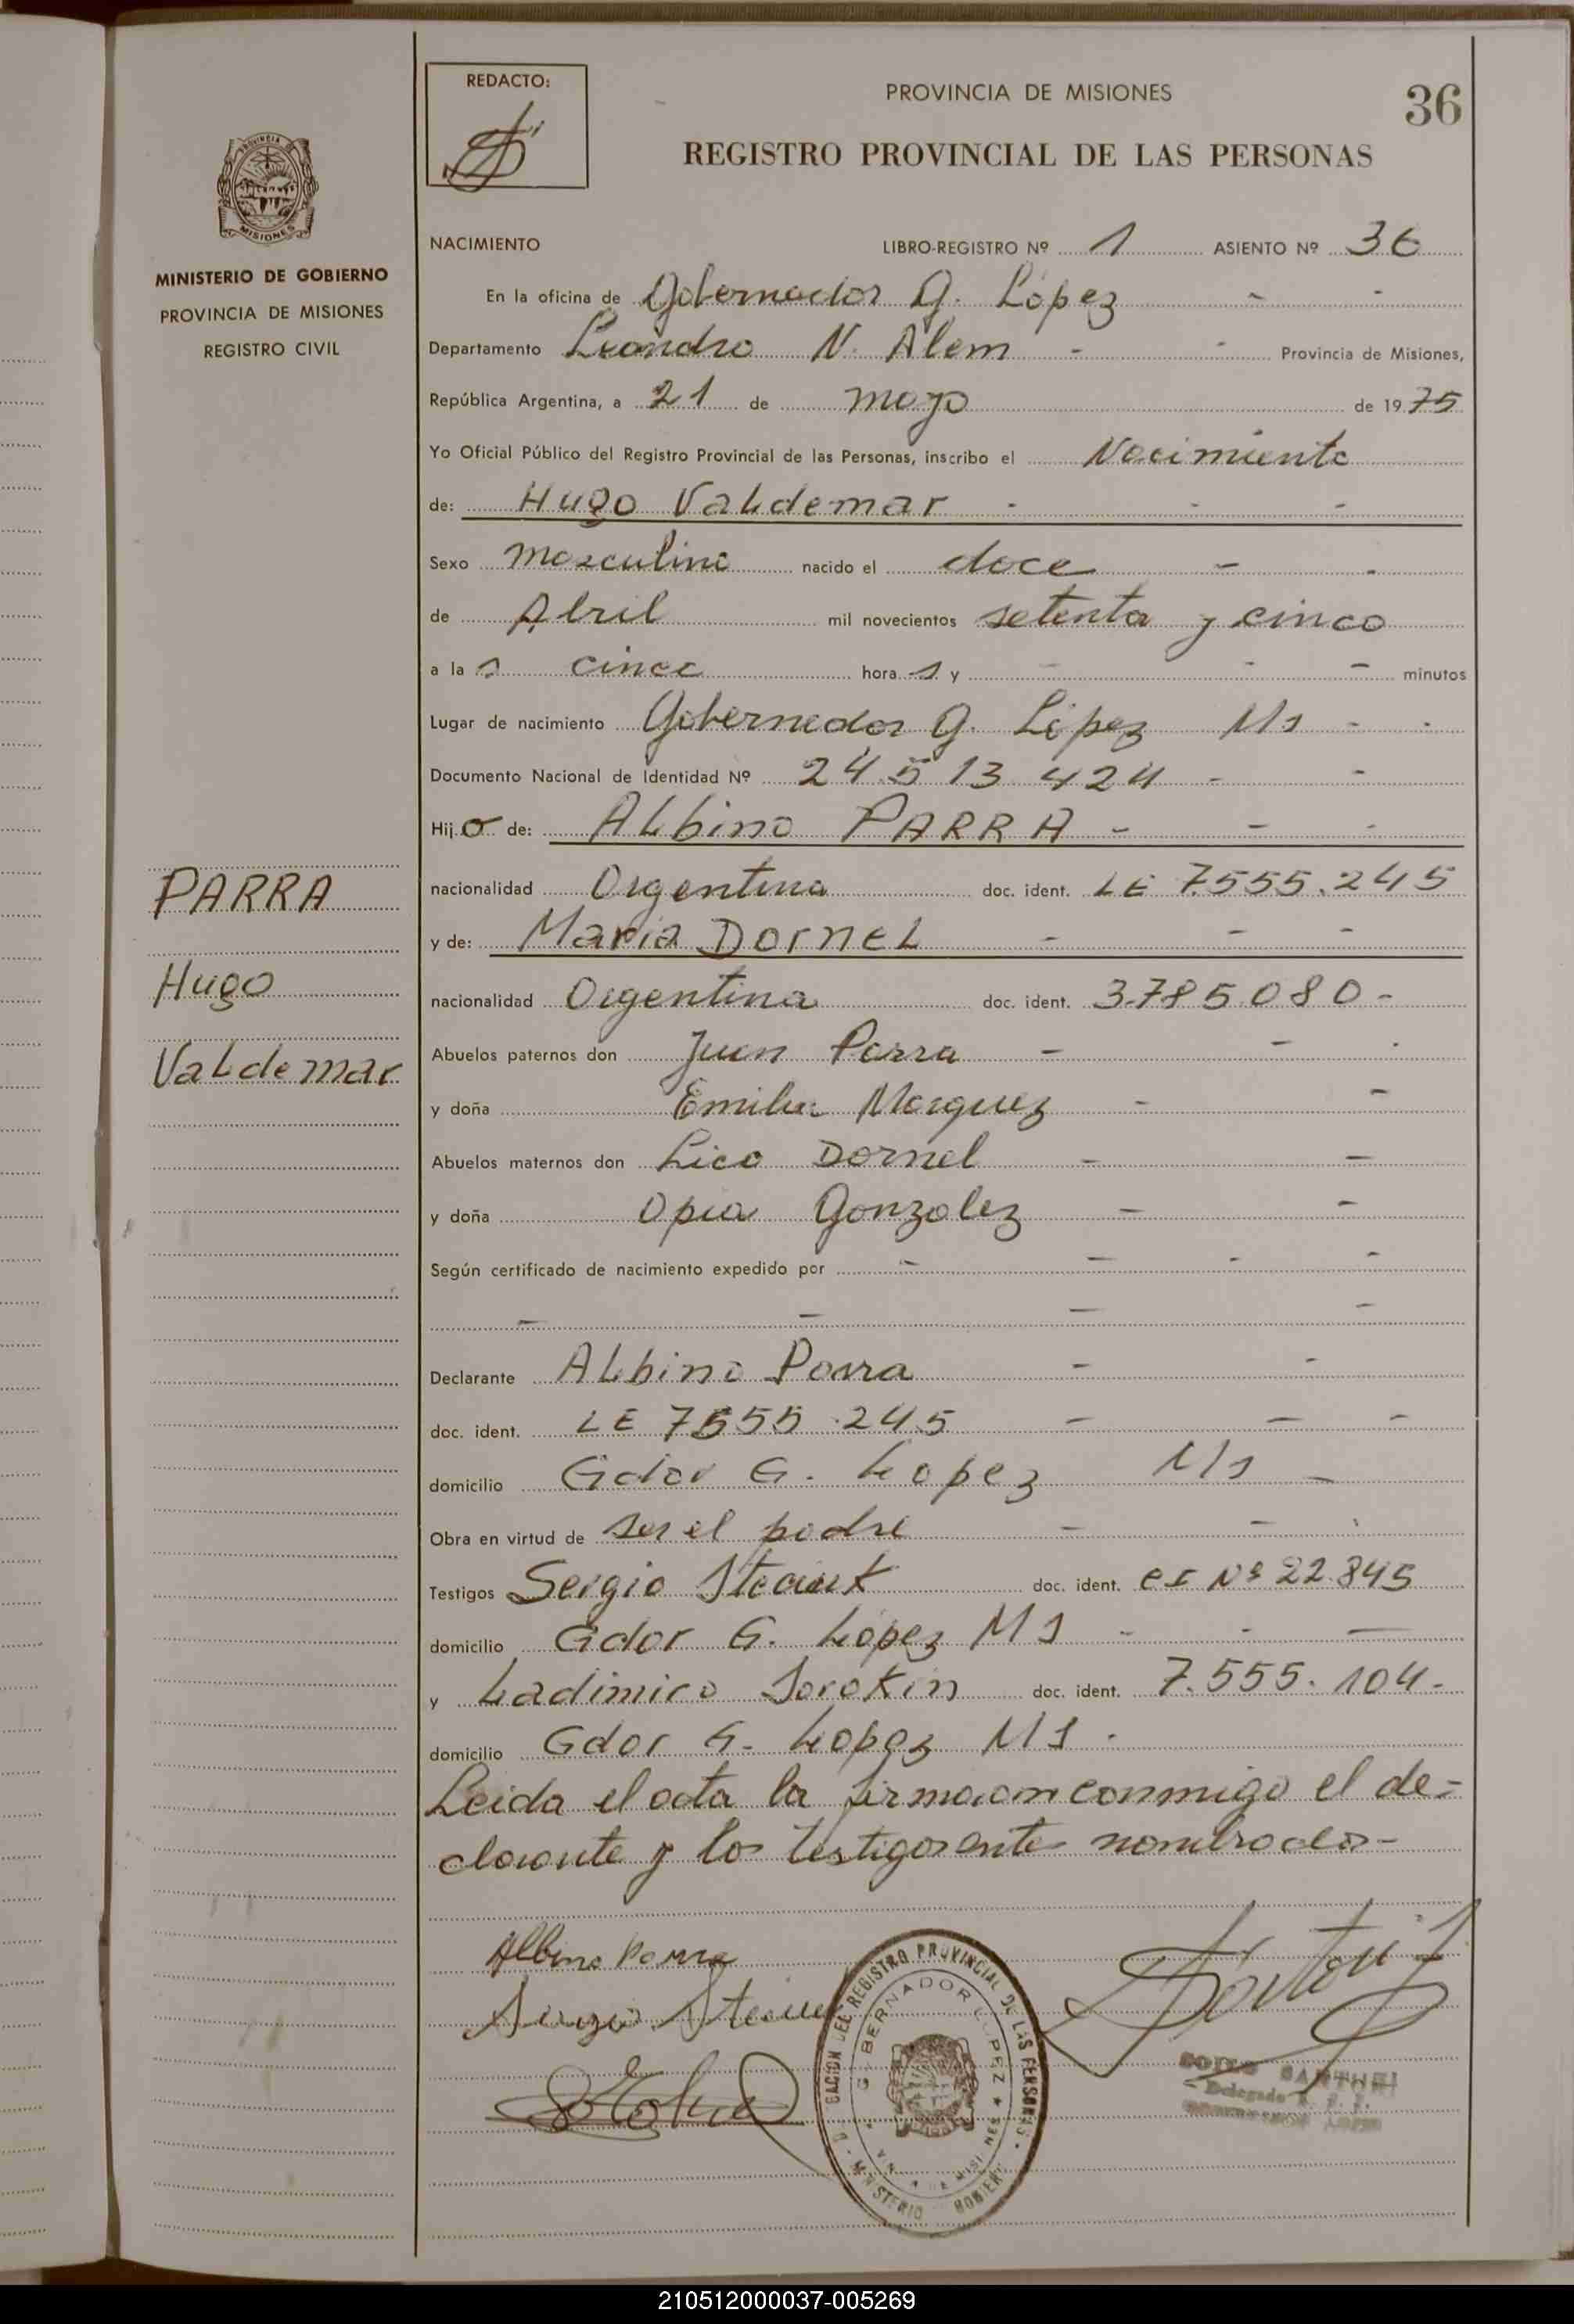 REDACTO:
PROVINCIA DE MISIONES
36
REGISTRO PROVINCIAL DE LAS PERSONAS
MISIONES
MINISTERIO DE GOBIERNO
PROVINCIA DE MISIONES
REGISTRO CIVIL
NACIMIENTO LIBRO-REGISTRO Nº 1 ASIENTO Nº 36
En la oficina de Gobernador G. López - -
Departamento Leandro N. Alem - - Provincia de Misiones,
República Argentina, a 21 de mayo de 1975
Yo Oficial Público del Registro Provincial de las Personas, inscribo el Nacimiento
de: Hugo Valdemar - - -
Sexo masculino nacido el doce - -
de Abril mil novecientos setenta y cinco
a las cinco horas y - - - minutos
Lugar de nacimiento Gobernador G. López Ms - -
Documento Nacional de Identidad Nº 24 513 424 - -
Hijo de: Albino PARRA - - -
PARRA
nacionalidad Argentina doc. ident. LE 7.555.245
y de: Maria Dornel - - -
Hugo
nacionalidad Argentina doc. ident. 3.785.080 -
Valdemar
Abuelos paternos don Juan Parra - - -
y doña Emilia Marquez - -
Abuelos maternos don Lico Dornel - -
y doña Opia Gonzalez - -
Según certificado de nacimiento expedido por - - - -
- - - -
Declarante Albino Parra - -
doc. ident. LE 7555.245 - - -
domicilio Gdor G. Lopez Ms -
Obra en virtud de ser el padre - - -
Testigos Sergio doc. ident. CI Nº 22.845
domicilio Gdor G. López Ms - - -
y Ladimiro Sorokin doc. ident. 7.555.104-
domicilio Gdor G. Lopez Ms -
Leida el acta la firman conmigo el de=
clarante y los testigos antes nombrados-
Albino Parra
REGISTRO PROVINCIAL DE LAS PERSONAS
GOBERNADOR LOPEZ
MINISTERIO
SARTORI
Delegado
210512000037-005269